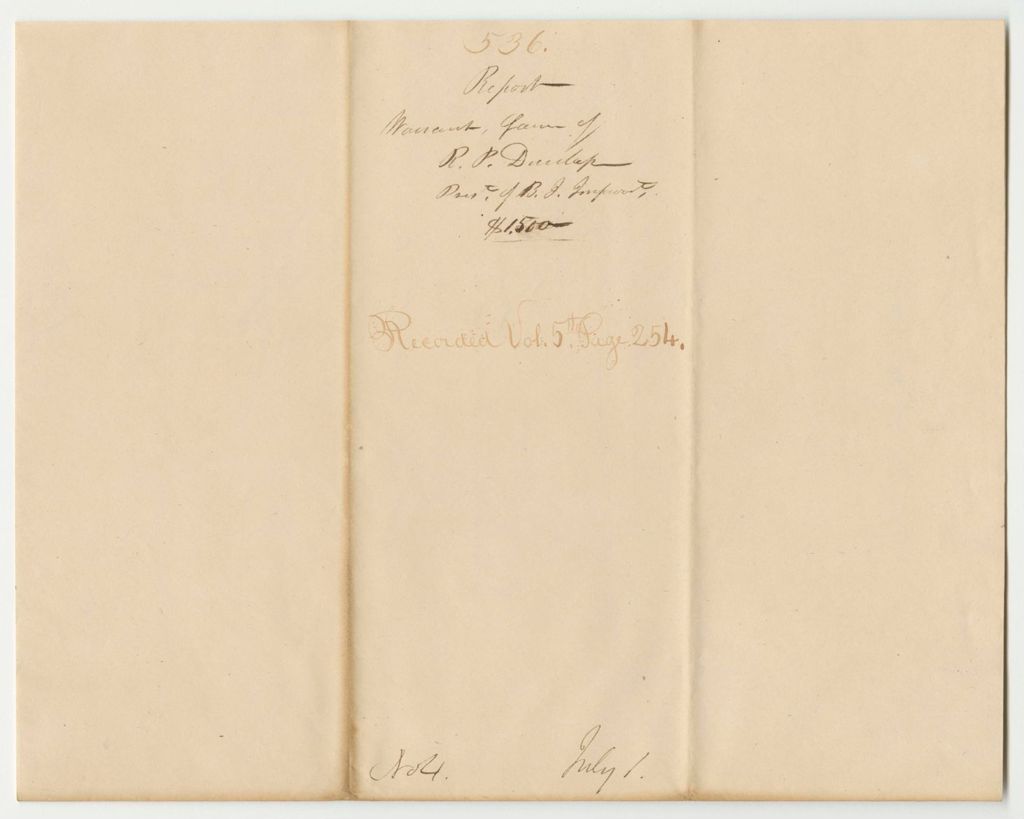 536.
Report
Warrant, favor of
R. P. Dunlap
Prest. of B. I. Improvt,.
$1,500
Recorded Vol. 5th Page 254.
No 4. July 1.